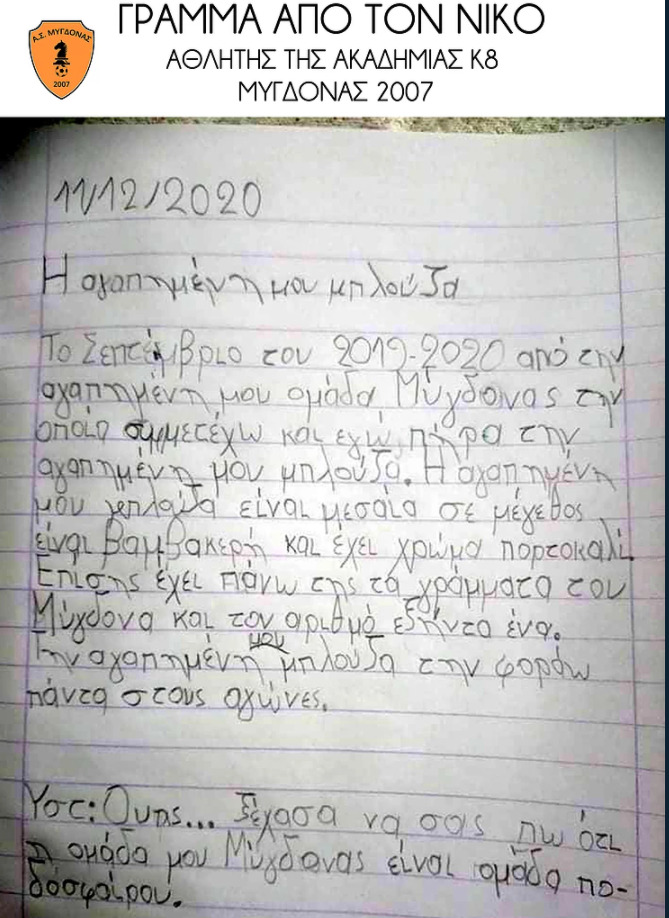 ΓΡΑΜΜΑ ΑΠΟ ΤΟΝ ΝΙΚΟ
ΑΘΛΗΤΗΣ ΤΗΣ ΑΚΑΔΗΜΙΑΣ Κ8
ΜΥΓΔΟΝΑΣ 2007
Α.Σ. ΜΥΓΔΟΝΑΣ
2007
11/12/2020
Η αγαπημένη μου μπλούζα
Το Σεπτέμβριο του 2019-2020 από την
αγαπημένη μου ομάδα Μύγδονας την
οποία συμμετέχω και εγώ, πήρα την
αγαπημένη μου μπλούζα. Η αγαπημένη
μου μπλούζα είναι μεσαία σε μέγεθος
είναι βαμβακερή και έχει χρώμα πορτοκαλί.
Επίσης έχει πάνω της τα γράμματα του
Μύγδονα και τον αριθμό εξήντα ένα.
Την αγαπημένη μου μπλούζα την φοράω
πάντα στους αγώνες.
Υσς: Ουπς... Ξέχασα να σας πω ότι
η ομάδα μου Μύγδονας είναι ομάδα πο-
δοσφαίρου.